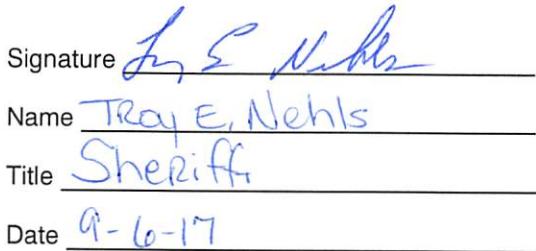 Signature Troy E Nehls
Name Troy E. Nehls
Title Sheriff
Date 9-6-17